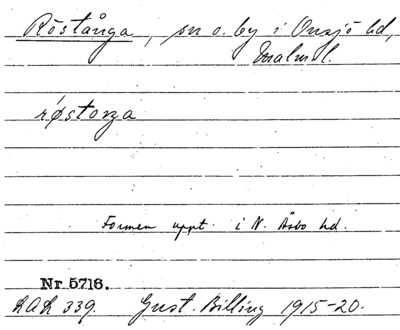 Röstånga, sn o. by i Onsjö hd,
Malm. l.
røstoŋa
Formen uppt. i N. Åsbo hd.
Nr 5716.
LAL 339. Gust. Billing 1915-20.